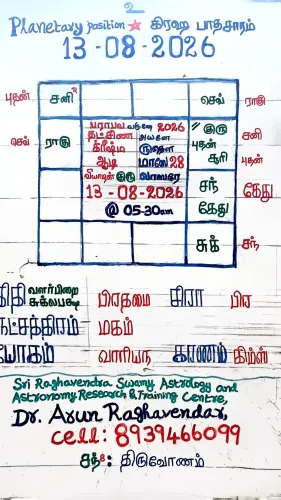 2
Planetary position ☆ கிரஹ பாதசாரம்
13 - 08 - 2026
புதன் சனி செவ் ராகு
செவ் ராகு பராபவ வருடம் 2026 // குரு சனி
தட்சிண அயனே புதன் புதன்
கிரீஷ்ம ருதௌ சூரி
ஆடி மாஸே 28
வியாழன் குரு வாஸரே சந் கேது
13 - 08 - 2026 கேது
@ 05-30am
சுக் சந்
திதி வளர்பிறை பிரதமை சிரா பிர
சுக்லபக்ஷ
நட்சத்திரம் மகம்
யோகம் வாரியந கரணம் கிம்ஸ்
Sri Raghavendra Swamy Astrology and
Astronomy Research & Training Centre,
Dr. Arun Raghavendar,
cell: 8939466099
சந்: திருவோணம்